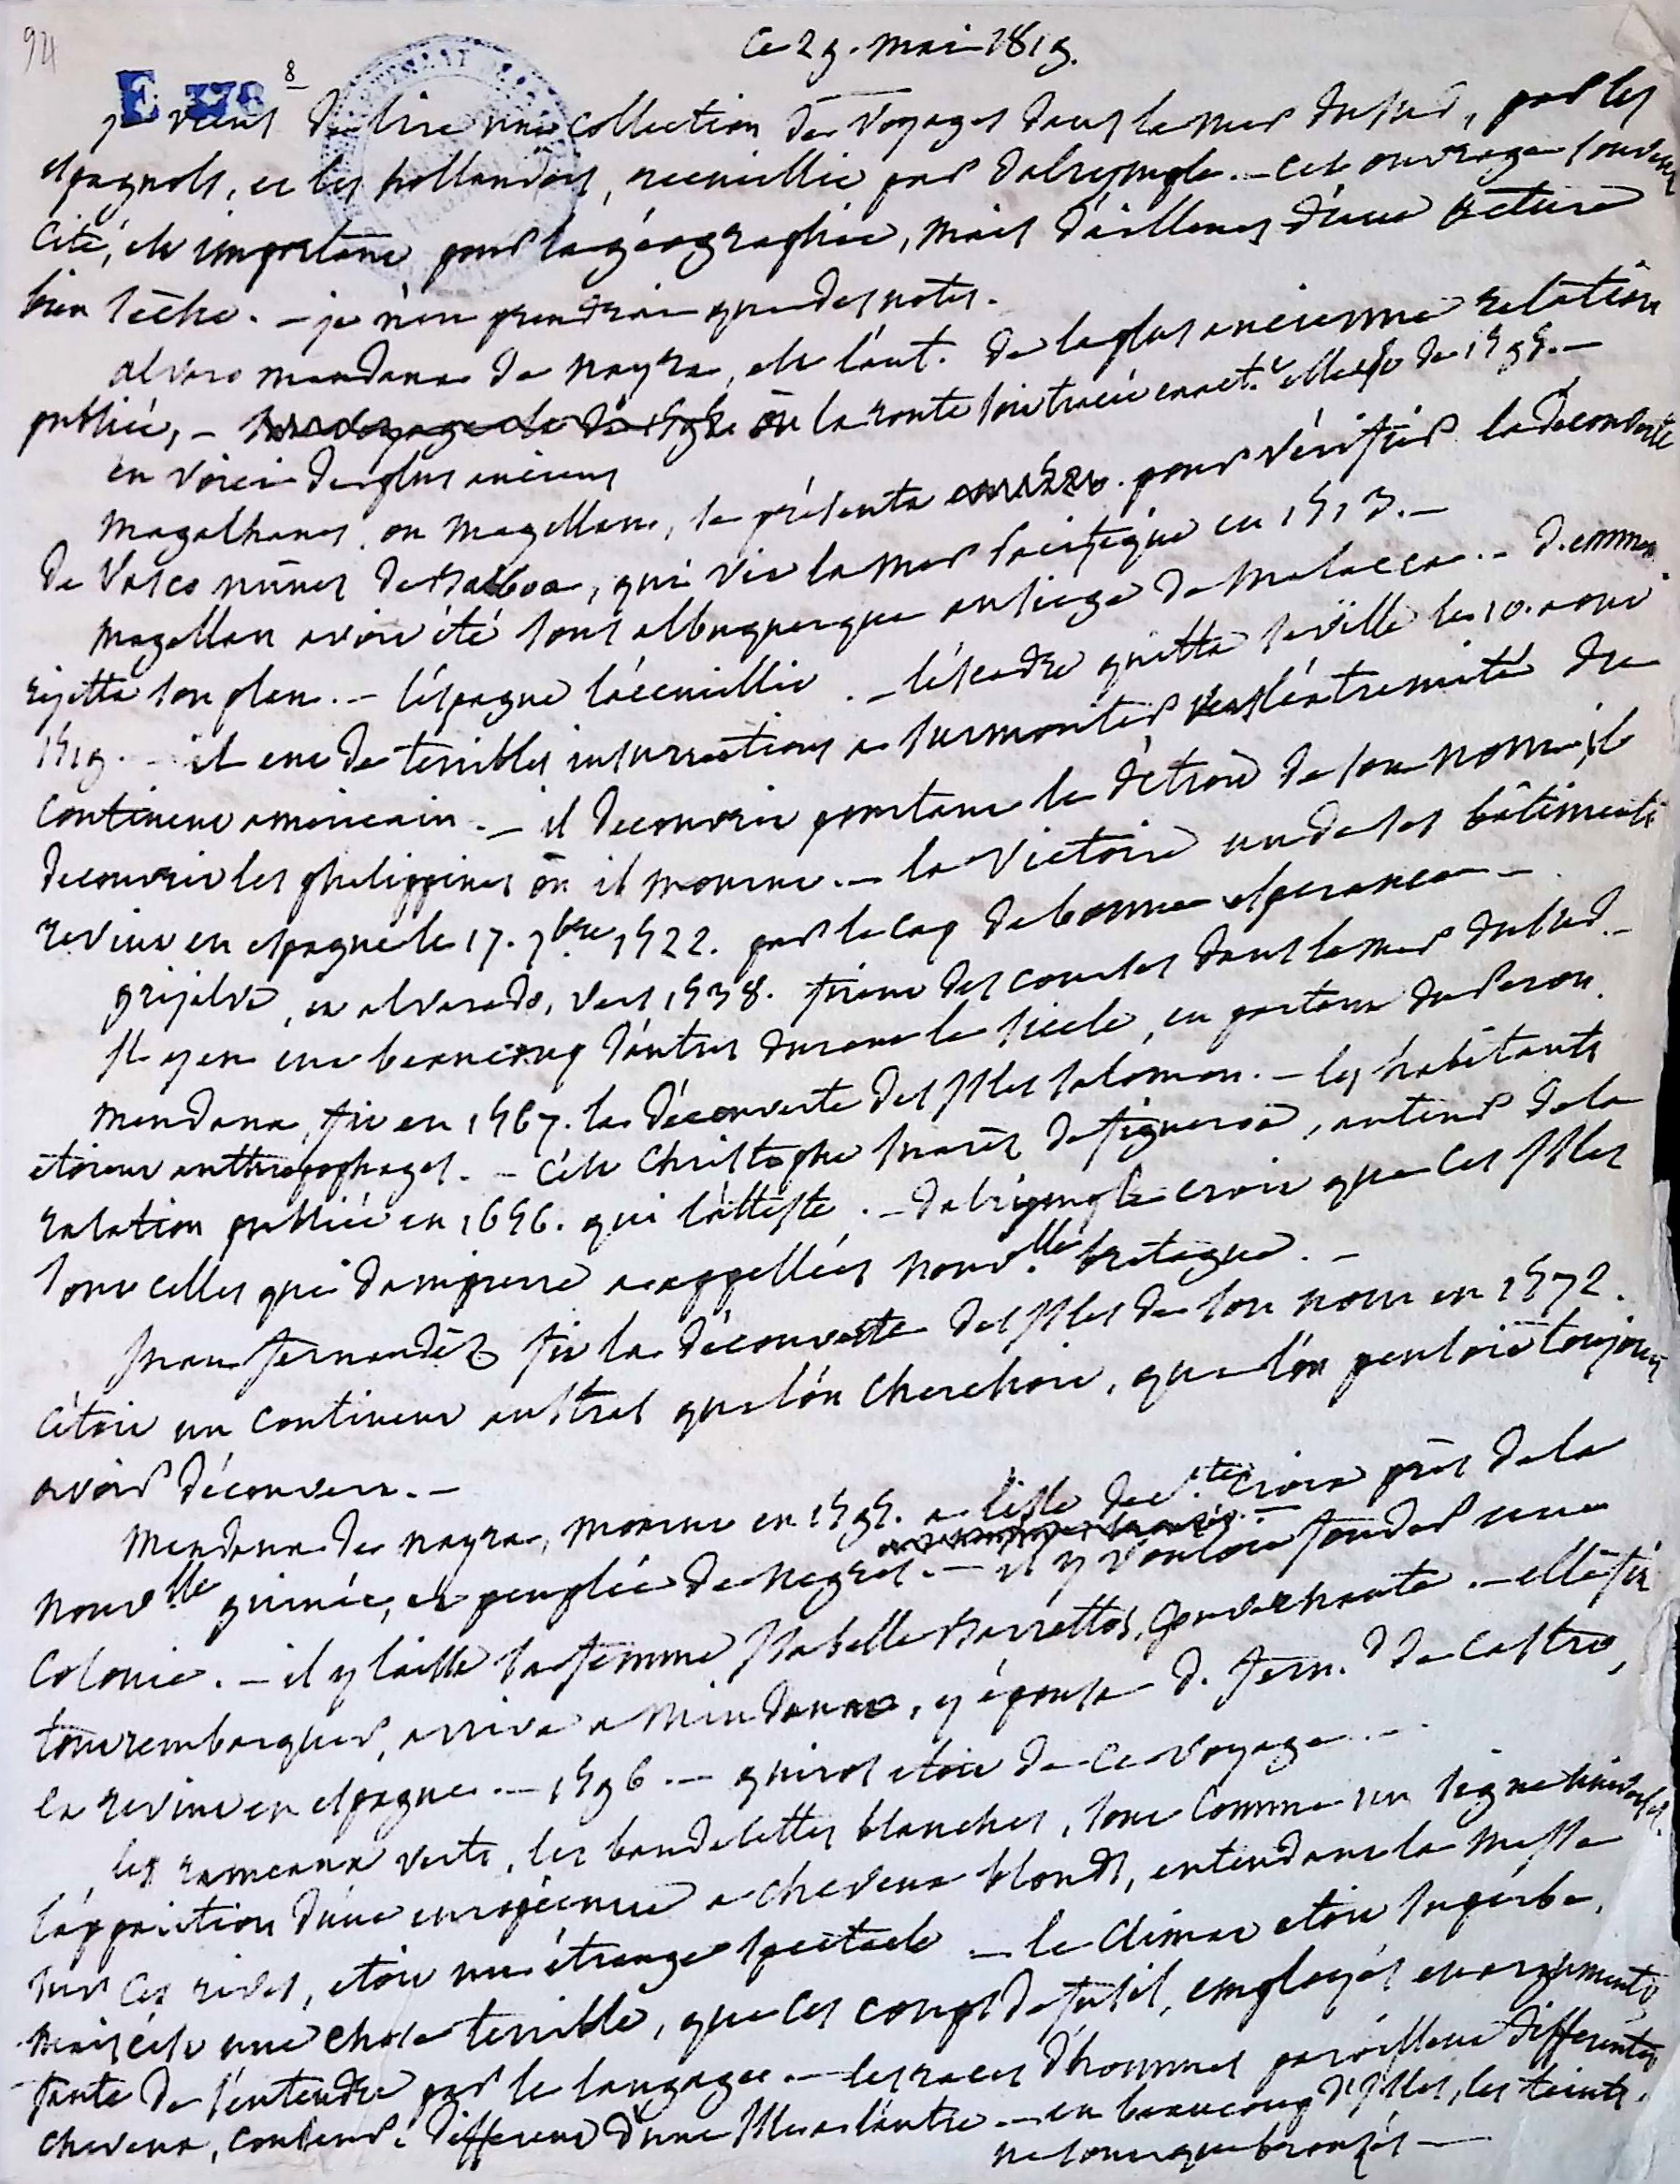 94
ce 29. mai 1819.
E 378
8
je viens de lire une collection de voyages dans la mer du sud, par les
espagnols, et les hollandois, recueillie par dalrymple. - cet ouvrage souvent
cité, est important pour la géographie, mais d'ailleurs d'une lecture
bien sèche. - je n'en prendrai que des notes.
alvaro mendana de neyra, est l'aut. de la plus ancienne relation
publiée, - où la route soit tracée exact.t elle est de 1595. -
en voici de plus anciens
magalhanes, ou magellan, se présenta pour vérifier la découverte
de Vasco nunes de Balboa, qui vit la mer pacifique en 1513. -
magellan avoit été sous albuquerque au siege de malacca. - d. emman.
rejetta son plan. - l'espagne l'accueillit. - l'escadre quitta seville le 10. aout
1519. - il eut de terribles insurrections a surmonter vers l'extremité du
continent americain. - il decouvrit pourtant le détroit de son nom, il
decouvrit les philippines où il mourut. - la victoire un de ses bâtiments
revint en espagne le 17. 7bre 1522. par le cap de bonne esperance -
grijalva, et alvarado, vers 1538. firent des courses dans la mer du sud. -
Il y en eut beaucoup d'autres durant le siecle, en partant du Perou.
mendana, fit en 1567. la découverte des Isles salomon. - les habitants
etoient anthropophages. - c'est christophe suarès de figueroa, auteur de la
relation publiée en 1656. qui l'atteste. - dalrymple croit que ces Isles
sont celles que dampierre a appellées nouv.lle bretagne. -
Juan fernandèz fit la découverte des Isles de son nom en 1572.
c'étoit un continent austral que l'on cherchoit, que l'on pensoit toujours
avoir découvert. -
Mendana de neyra, mourut en 1595. a l'isle de s.te croix près de la
nouv.lle guinée, et peuplée de negres. - il y vouloit fonder une
colonie. - il y laissa sa femme Isabelle Barrettos, gouvernante. - elle fit
tout rembarquer, arriva a Mindanao, y épousa d. fern. d de castro,
et revint en espagne. - 1596. - quiros etoit de ce voyage. -
les rameaux verts, les bandelettes blanches, sont comme un signe universel.
l'apparition d'une européenne a cheveux blonds, entendant la messe
sur ces rives, etoit un étrange spectacle - le climat etoit superbe,
mais c'est une chose terrible, que les coups de fusil, employés en arguments,
faute de s'entendre par le langage. - les races d'hommes paroissent differentes
cheveux, couleur, different d'une Isle a l'autre - en beaucoup d'Isles, les teints
ne sont que bronzés -